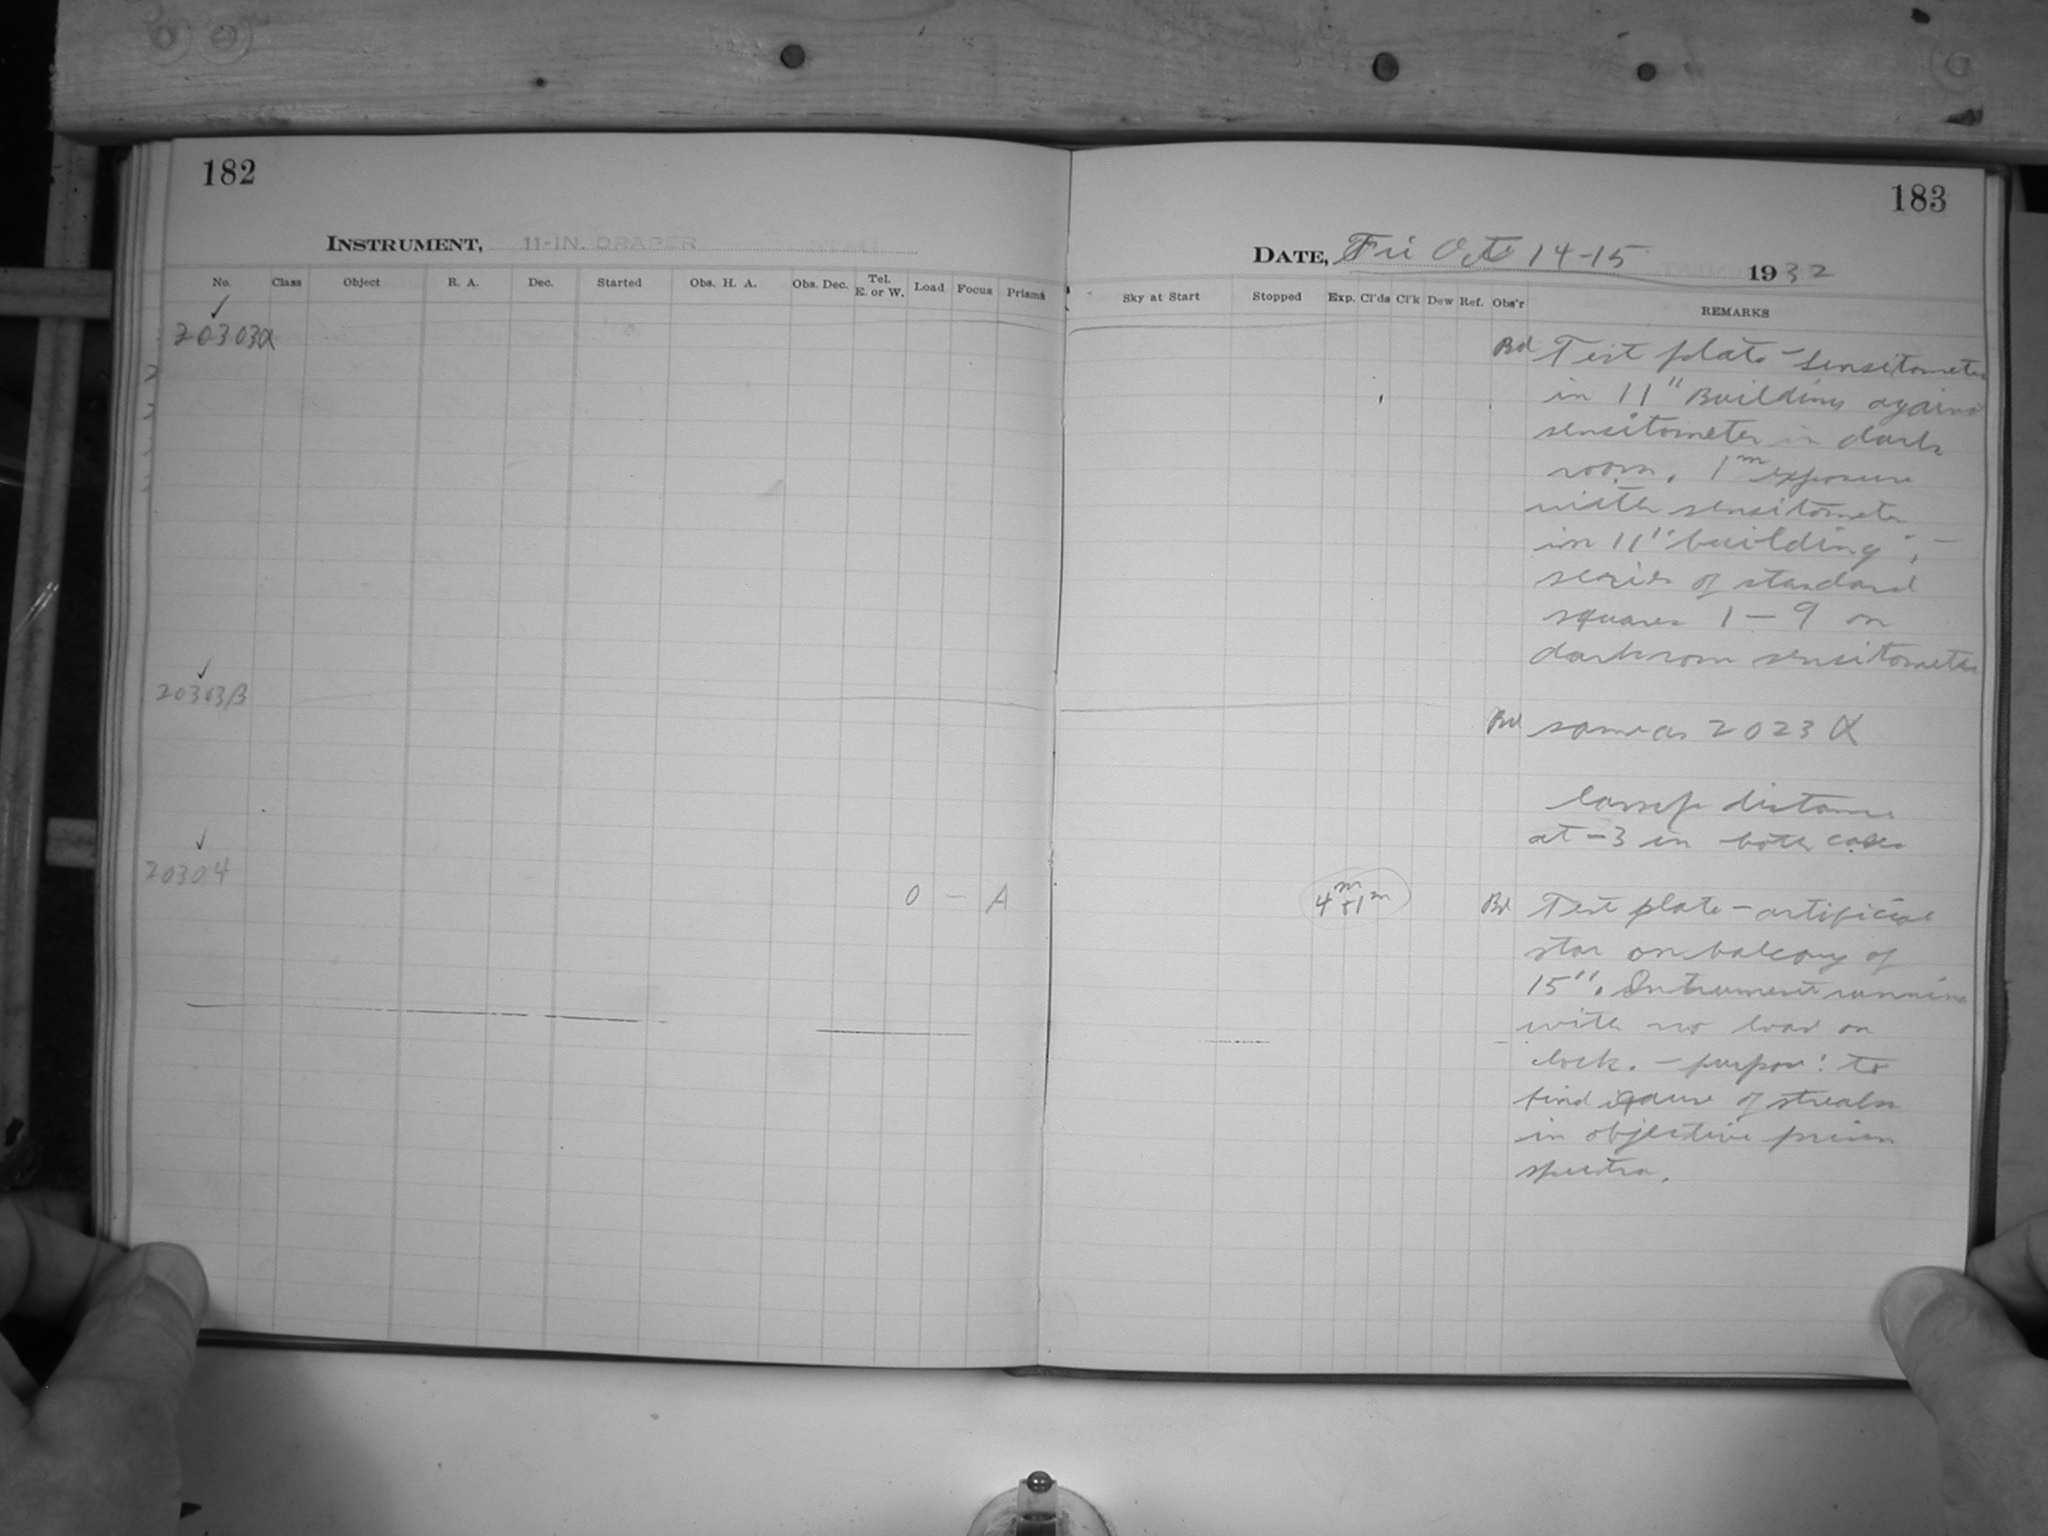 182
INSTRUMENT, 11-IN. DRAPER
No. Class Object R. A. Dec. Started Obs. H. A. Obs. Dec. Tel. E. or W. Load Focus Prisms
✓
20303α
✓
20303β
✓
20304 0 — A
183
DATE, Fri Oct 14-15 1932
Sky at Start Stopped Exp. Cl'ds Cl'k Dew Ref. Obs'r REMARKS
Bd Test plate - sensitometer
in 11" Building against
sensitometer in dark
room. 1m exposure
with sensitometer
in 11" building;
series of standard
squares 1 — 9 on
darkroom sensitometer
Bd same as 2023 α
distance
at -3 in both cases
4m 51m Bd Test plate - artificial
star on balcony of
15". Instrument running
with no load on
clock. - purpose: to
find cause of streaks
in objective prism
spectra.